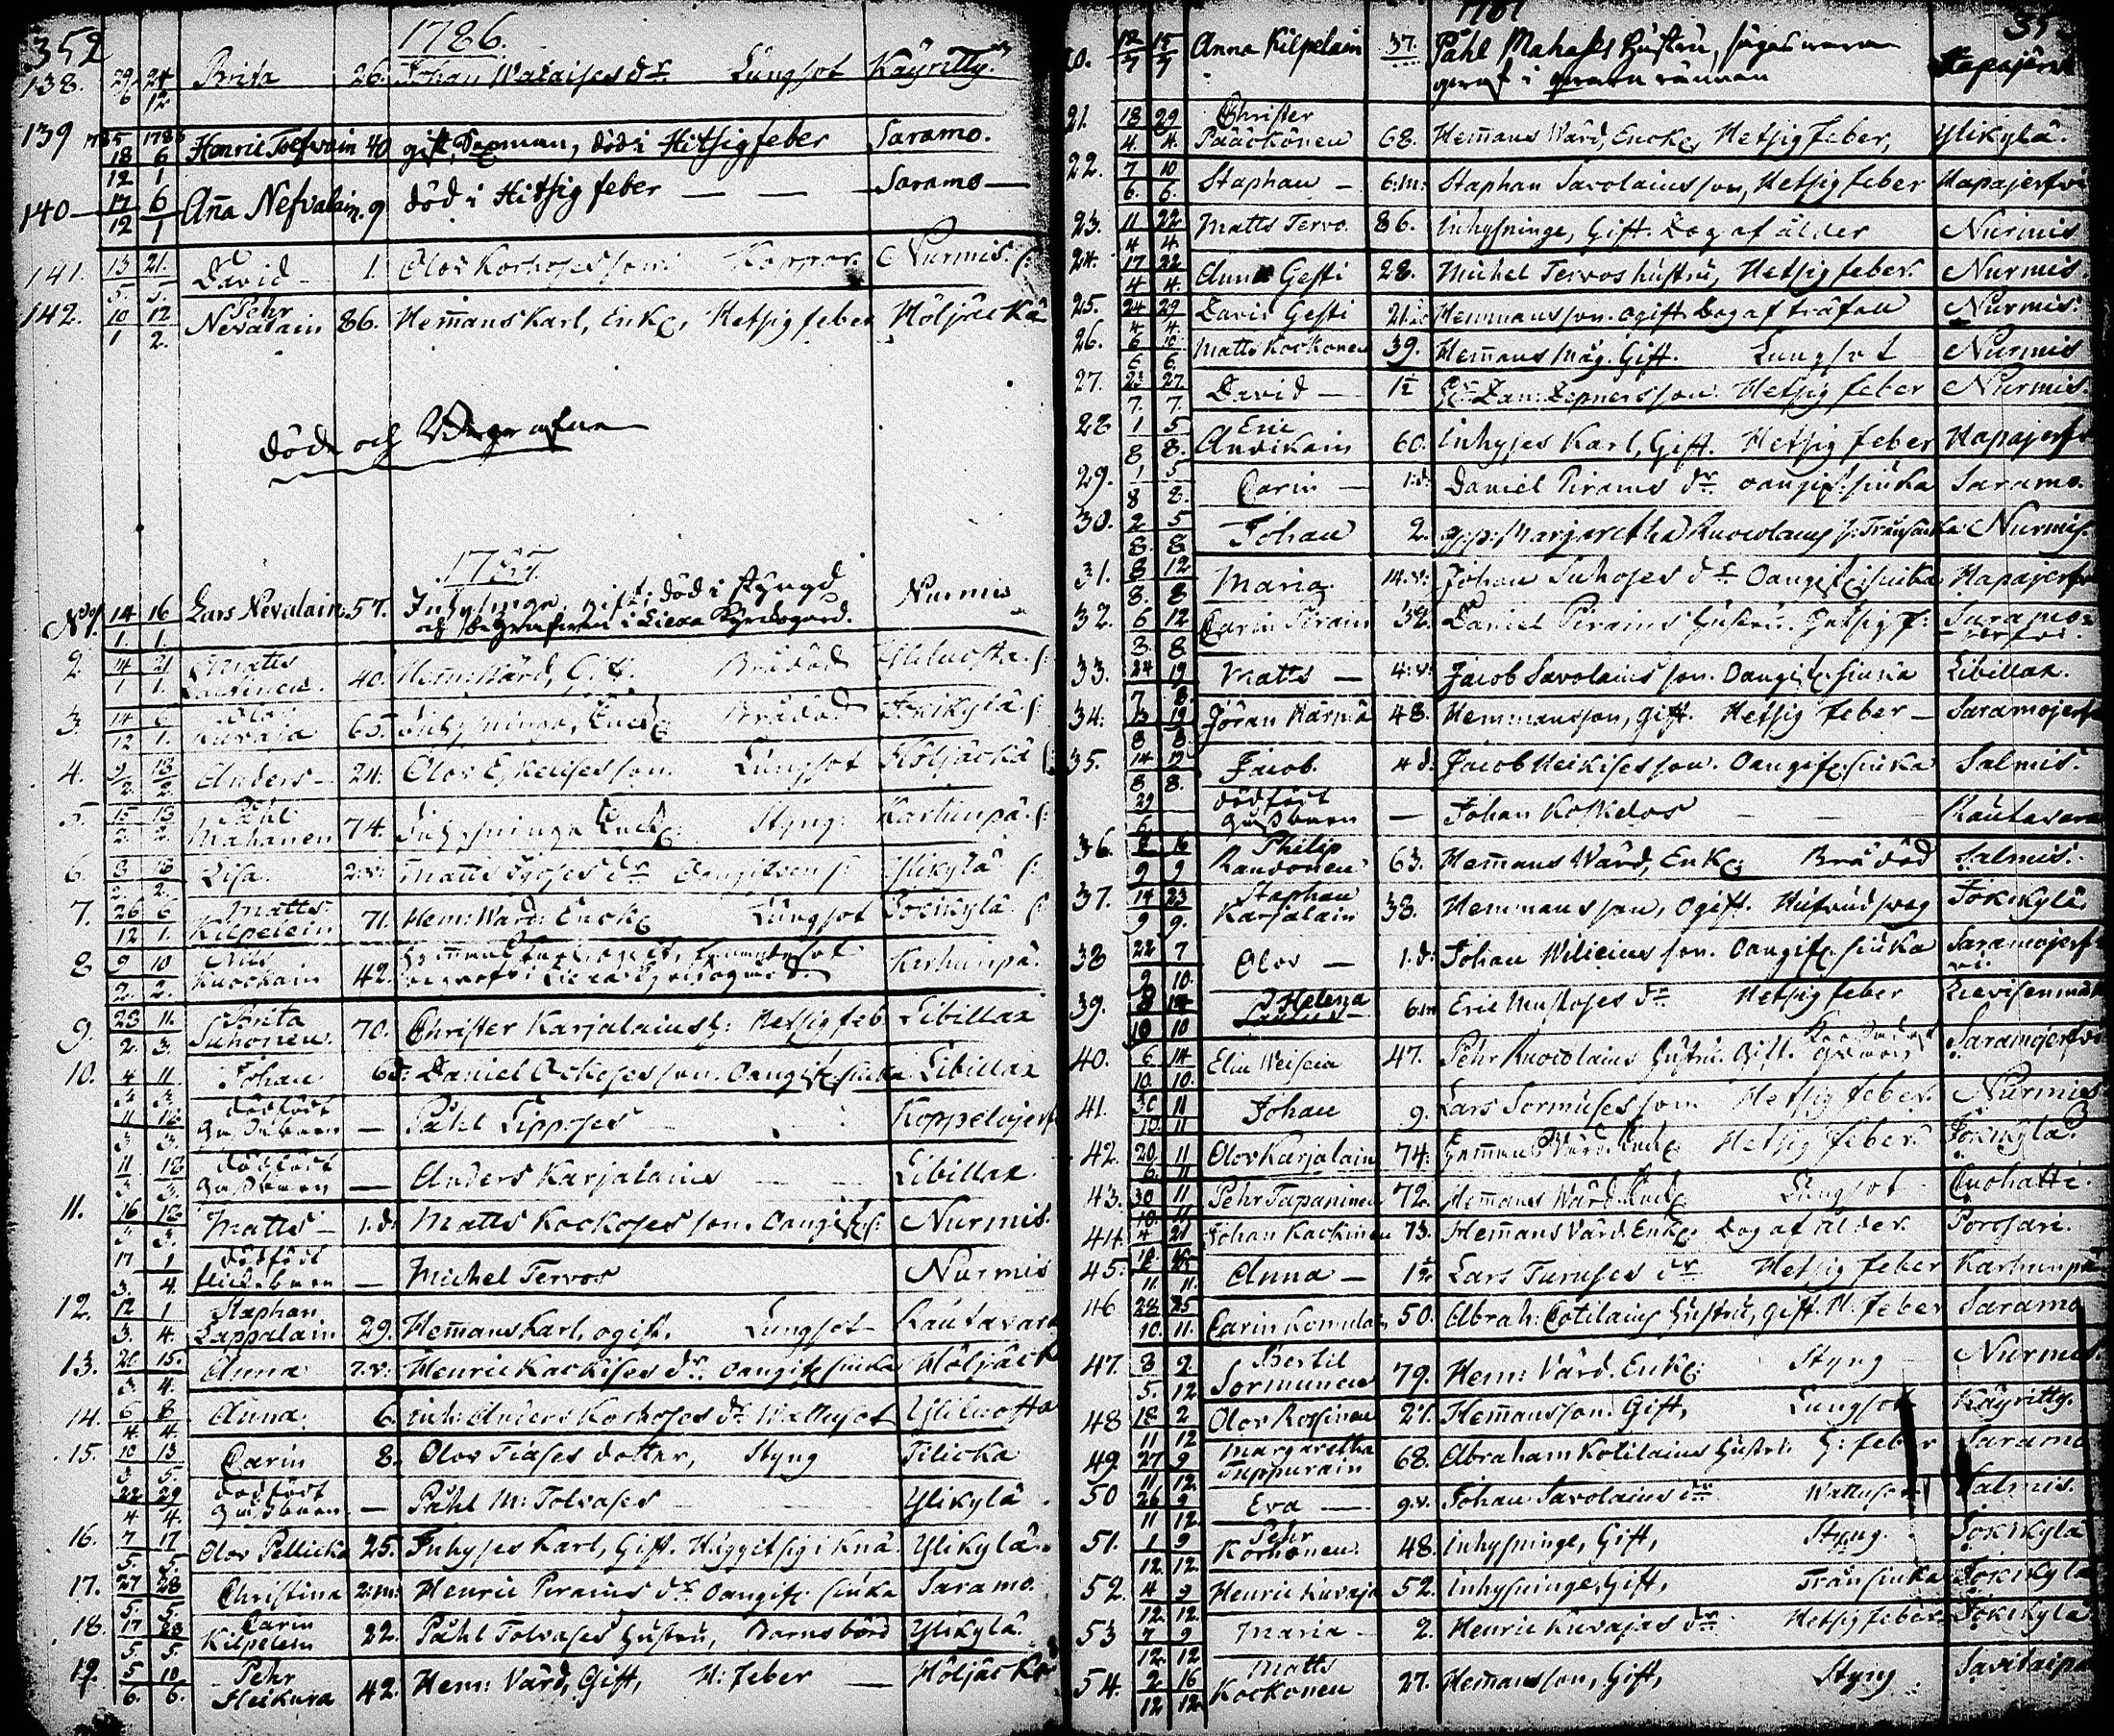 352
1786.
138. 29/6 24/12 Brita 26. Johan Wataises dr Lungsot Käyritty.
139 1785 18/12 1786 6/1 Henric Tolfvain 40 gift, död i Hitsig feber Saramo.
140 17/12 6/1 Aña Nefvalain 9 död i Hitsig feber — — Saramo —
141. 13/5. 21./5. David — 1. Olov Korhoses son. Koppor. Nurmis.
142. 10/1 12/2. Pehr Nevalain 86. Hem̄ans Karl, Enk, Hetsig feber Höljäckä
döde och Begrafne
1787.
No 1. 14/1. 16/1. Lars Nevalain 57. Inhysinge, gift, död i styngd Nurmis
och begrafven i Liexa Kyrckogård.
2. 14/1 21/1. Matts 40. Hem: Wärd, Gift. Brådöd Yliluosta.
3. 14/12 6/1. Olov Kuvaja 65. Inhysninge, Enck Brådöd Jokikylä
4. 9/2. 18/2. Anders — 24. Olov Eskelises son. Lungsot Höljäckä
5. 15/2. 18/2. Påhl Mahanen 74. Inhysninge Enck. Styng. Karhunpä.
6. 3/2. 18/2. Lisa. 2:v: Matts dr Oangifven s. Ylikylä
7. 26/12 6/1. Matts Kilpelein 71. Hem: Wärd. Enck Lungsot Jokikylä.
8 9/2. 10/2. Nils Kuockain 42. ogift, Karhunpä.
begrafv. i Liexa Kyrckogård.
9. 23/2. 11./3. Brita Suhonen. 70. Christer Karjalains h: Hetsig feb: Libillax
10. 4/3 11/3. Johan 6d: Daniel Ockoses son. Oangif. siuka Libillax
11/3 18/3. dödfödt gåssbarn — Påhl Lipposes — Koppelojerf
11/3 18/3. dödfödt gåssbarn — Anders Karjalains — — Libillax.
11. 16/3 18/3. Matts — 1.d: Matts Kockoses son. Oangif. s: Nurmis.
17/3. 1/4. dödfödt flickebarn — Michel Tervos Nurmis
12. 12/3. 1/4. Staphan Lappalain 29. Hem̄ans Karl, ogift. Lungsot — Rautavara
13. 20/3. 15./4. Anna 7.v: Henric Kackises dr. Oangif. siuka Höljäck
14. 6/4. 8/4. Anna. 6. inh: Anders Korhoses dr Wattusot Yliluosta
15. 10/3. 13/5. Carin 8. Olov Tiases dotter, Styng Tilicka
22/4 29/4. dödfödt gåssbarn — Påhl M: Tolvases — — Ylikylä
16. 7/5. 17/5. Olov Pellicka 25. Inhyses Karl, Gift. Huggit sig i knä. Ylikylä.
17. 27/5. 28/5. Christina 2:m: Henric Pirains dr. Oangif. siuka Saramo.
18. 17/5. 28/5. Carin Kilpelein 22. Påhl Tolvases hustru, Barnsbörd Ylikylä.
19. 5/6. 10/6. Pehr Heikura 42. Hem: Värd, Gift, H: feber — Höljäckä
1787
353
20. 12/4 15/4 Anna Kilpelain 37. Påhl Mahases hustru, säges vara Hapajärvi
21. 18/4. 29/4. Christer Pääckönen 68. Hem̄ans Wärd, Enck, Hetsig feber, Ylikylä.
22. 7/6. 10/6. Staphan — 6:m: Staphan Savolains son, Hetsig feber Hapajerfvi
23. 11/4 22/4. Matts Tervo. 86. Inhysninge, Gift. Dog af ålder Nurmis
24. 17/4 22/4. Anna Gesti 28. Michel Tervos hustru, Hetsig feber. Nurmis.
25. 24/4. 29/4. David Gesti 21. Hemmansson. ogift Dog af Nurmis.
26. 6/6. 10/6. Matts Kockonen 39. Hem̄ans måg. Gift. Lungsot Nurmis
27. 23/7. 27./7. David — 1½ Dan: Depners son. Hetsig feber Nurmis.
28 1/8 5/8. Eric Anvikain 60. Inhyses Karl, Gift. Hetsig feber Hapajerf
29. 1/8 5/8. Carin — 1:d: Daniel Pirains dr oangif. siuka Saramo.
30. 2/8. 5/8 Johan 2. Margaretha Kuocolains s. Trånsiuka Nurmis.
31. 8/8. 12/8 Maria 14.v: Johan Suhoses dr. Oangif. siuka Hapajerf
32. 6/8. 12/8 Carin Pirain 32. Daniel Pirains hustru. Hetsig f: Saramo
33. 24/7 19/8. Matts — 4:v: Jacob Savolains son. Oangif. siuka Libillax.
34. 13/8 19/8. Jöran Härmä 48. Hemmansson, Gift. Hetsig feber — Saramojerf
35. 14/8 19/8. Jacob. 4 d: Jacob Heikises son. Oangif. siuka Salmis.
29/6. dödfödt gåssbarn — Johan Koskelos — — Rautavara
36. 8/9 16/9 Philip Randonen 63. Hem̄ans Wärd, Enk. Brådöd Salmis.
37. 14/9 23/9. Staphan Karjalain 38. Hemmansson, Ogift. Hufvudswag Jokikylä.
38 22/9 7/10. Olov — 1.d: Johan Wilicius son. Oangif. siuka Saramojerf
39. 8/10 14/10 Helena 6m Eric Mustoses dr Hetsig feber Lievisenmäki
40. 6/10. 14/10. Elin Weisein 47. Pehr Kuocolains hustru. Gift. Saramojerfvi
41. 30/10. 11/11 Johan 9. Lars Sormuses son Hetsig feber. Nurmis
42. 20/6. 11/11 Olov Karjalain 74. Hemmans Wärd. Enck Hetsig feber Jokikylä
43. 30/10. 11/11 Pehr Tapaninen 72. Hem̄ans Wärd. Enck Lungsot Cuohatti.
44. 4/12 21/12 Johan Kackinen 73. Hem̄ans Värd. Enk. Dog af ålder. Porosari.
45. 11. 11. Anna — 1½ Lars Turuses dr Hetsig feber Karhunpä
46 28/10. 25/11. Carin Romulain 50. Abrah: Cotilains hustru, gift. H: feber Saramo
47. 3/5. 2/12 Bertil Sormunen 79. Hem: Värd. Enk: Styng Nurmes
48 18/11 2/12 Olov Rossinen 27. Hem̄ansson. Gift, Lungsot Käyritty.
49. 27/11 9/12. Margaretha Tuppurain 68. Abraham Kotilains hustru H: feber Saramo
50 26/11 9/12. Eva — 9.v. Johan Savolains dr Wattusot Salmis.
51. 1/12. 9/12. Pehr Korhonen. 48. Inhysninge, Gift, Styng. Jokikylä
52. 4/12. 9/12. Henric Kuvaja 52. Inhysninge, Gift, Trånsiuka Jokikylä
53 7/12. 9/12 Maria — 2. Henric Kuvajas dr Hetsig feber Jokikylä
54. 2/12 16/12 Matts Kockonen 27. Hem̄ansson, Gift, Styng Savikaipa